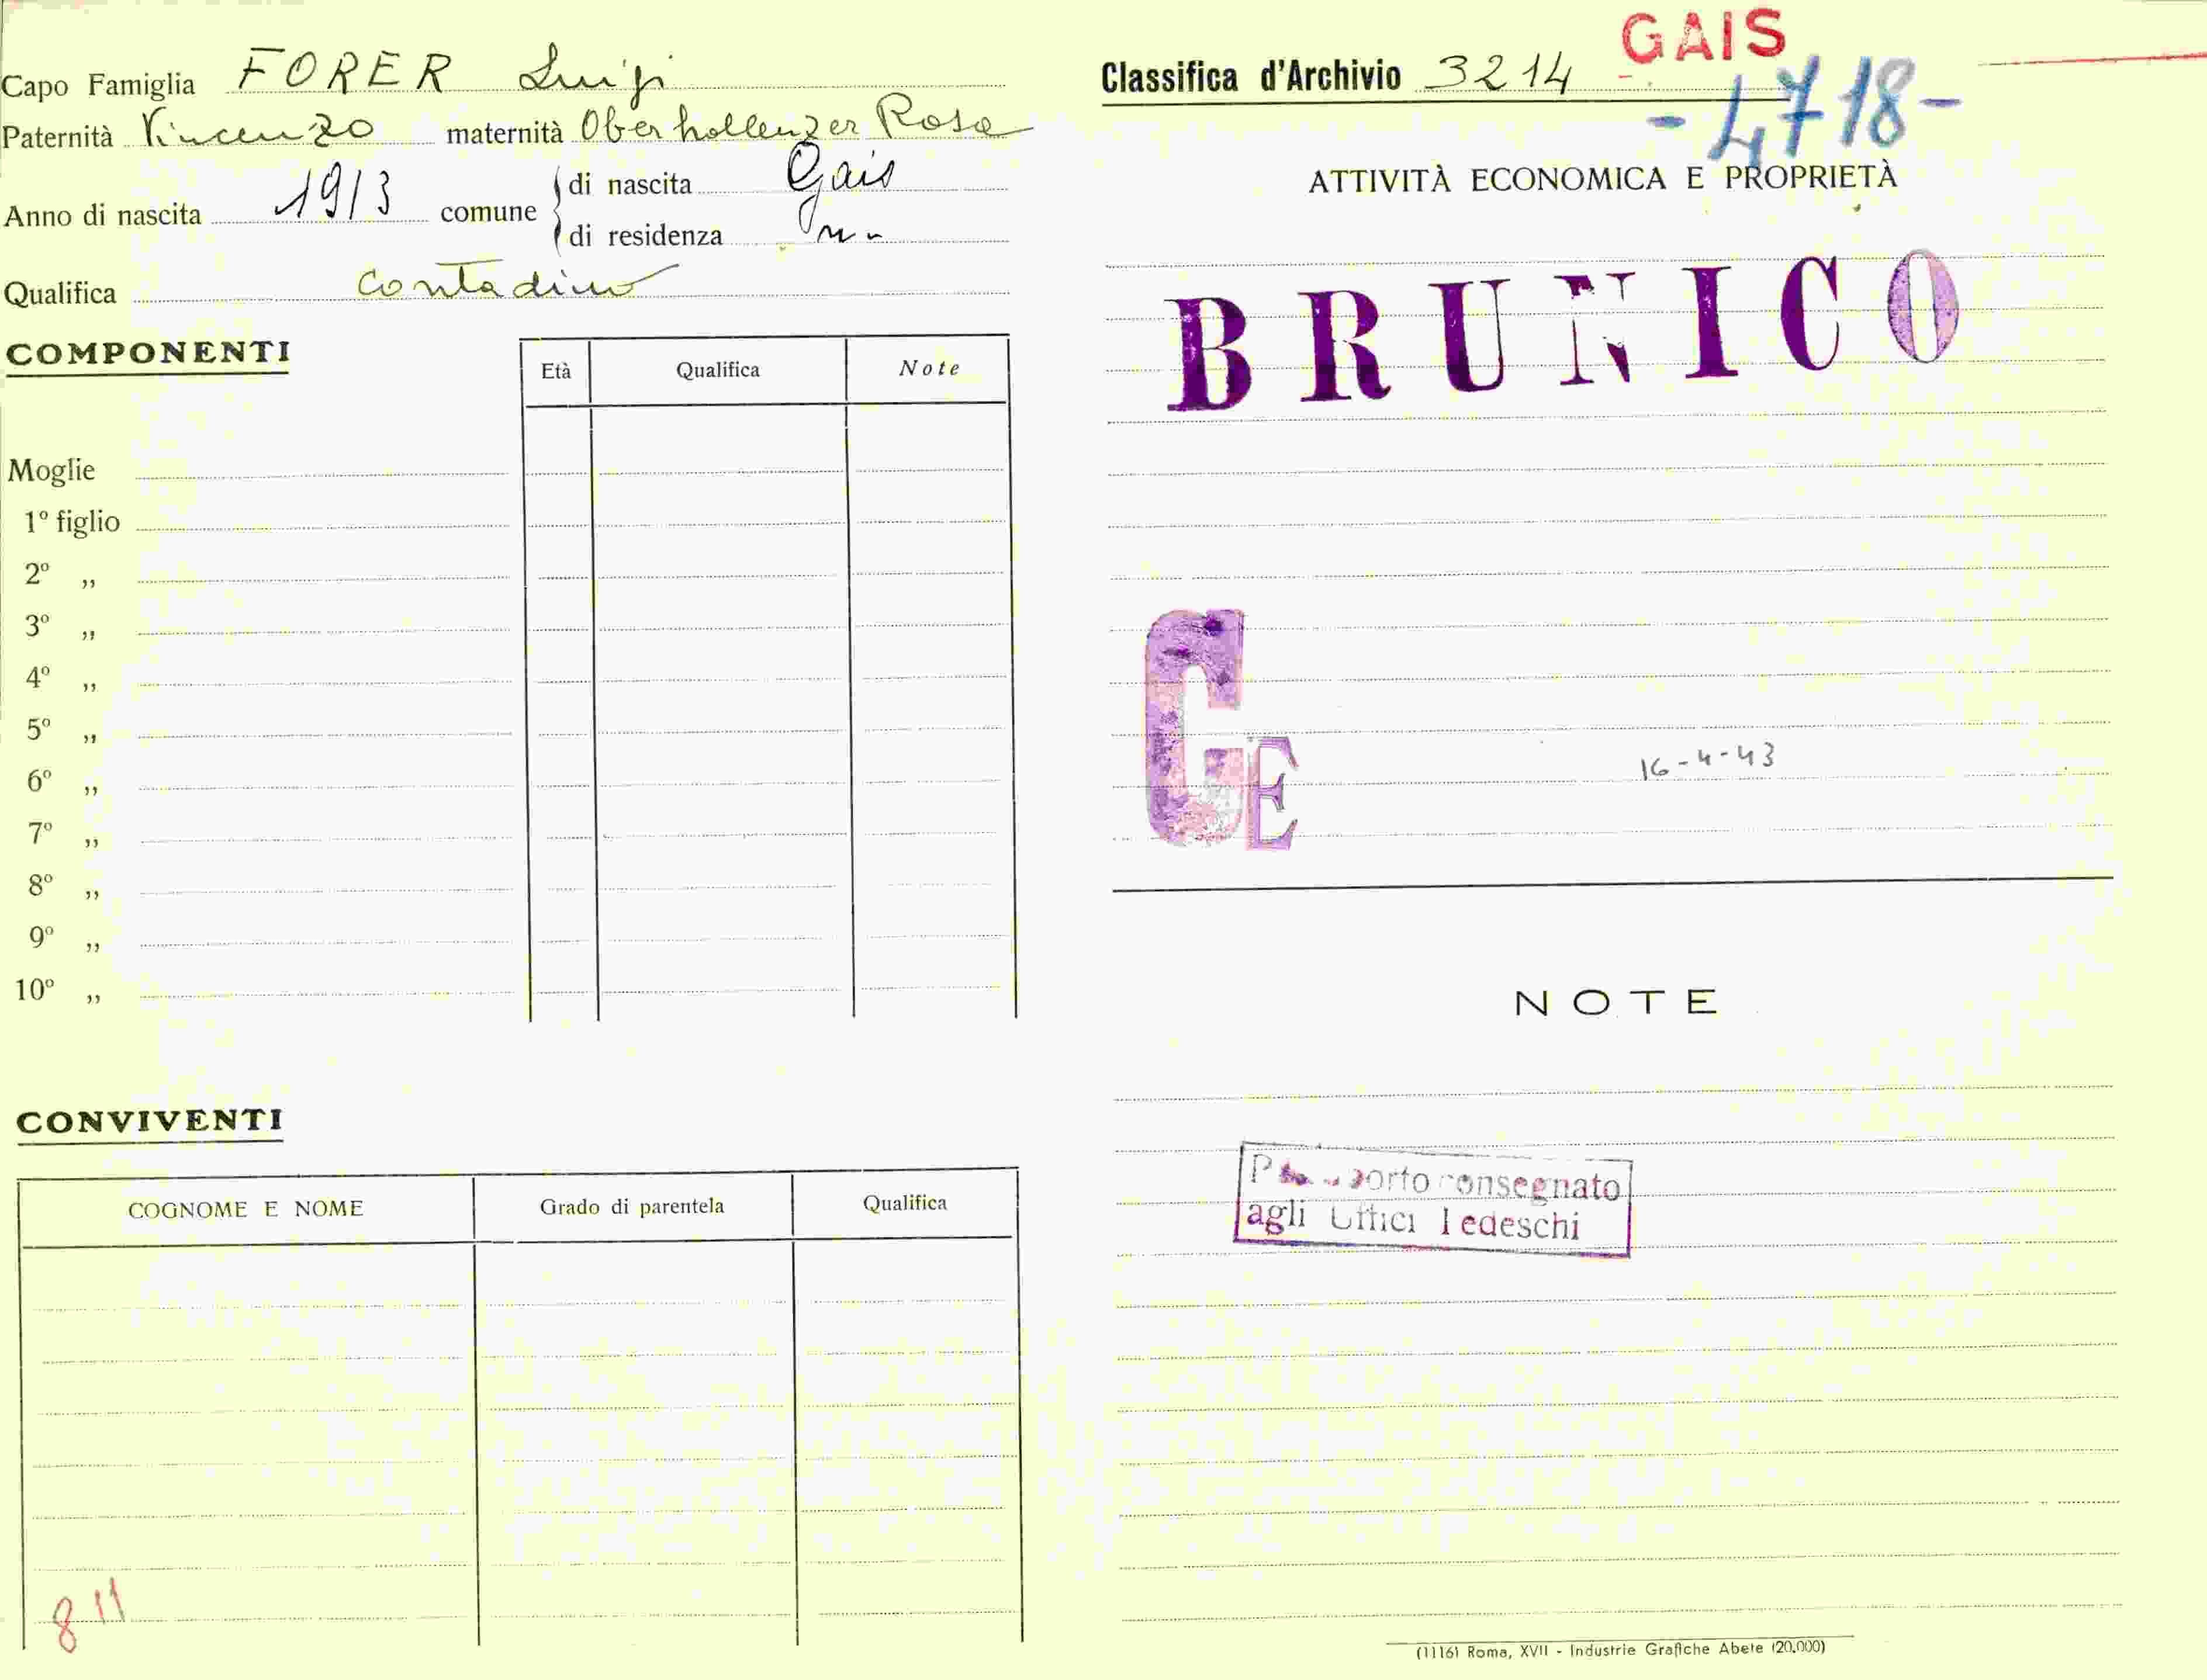 Capo Famiglia FORER Luigi
Paternità Vincenzo maternità Oberhollenzer Rosa
Anno di nascita 1913 comune di nascita Gais
di residenza
Qualifica contadino
COMPONENTI
Età Qualifica Note
Moglie
1º figlio
2º „
3º „
4º „
5º „
6º „
7º „
8º „
9º „
10º „
CONVIVENTI
COGNOME E NOME Grado di parentela Qualifica
8 11
GAIS
Classifica d'Archivio 3214
- 4718 -
ATTIVITÀ ECONOMICA E PROPRIETÀ
BRUNICO
G
E
16-4-43
NOTE
consegnato
agli Uffici Tedeschi
(1116) Roma, XVII - Industrie Grafiche Abete (20.000)